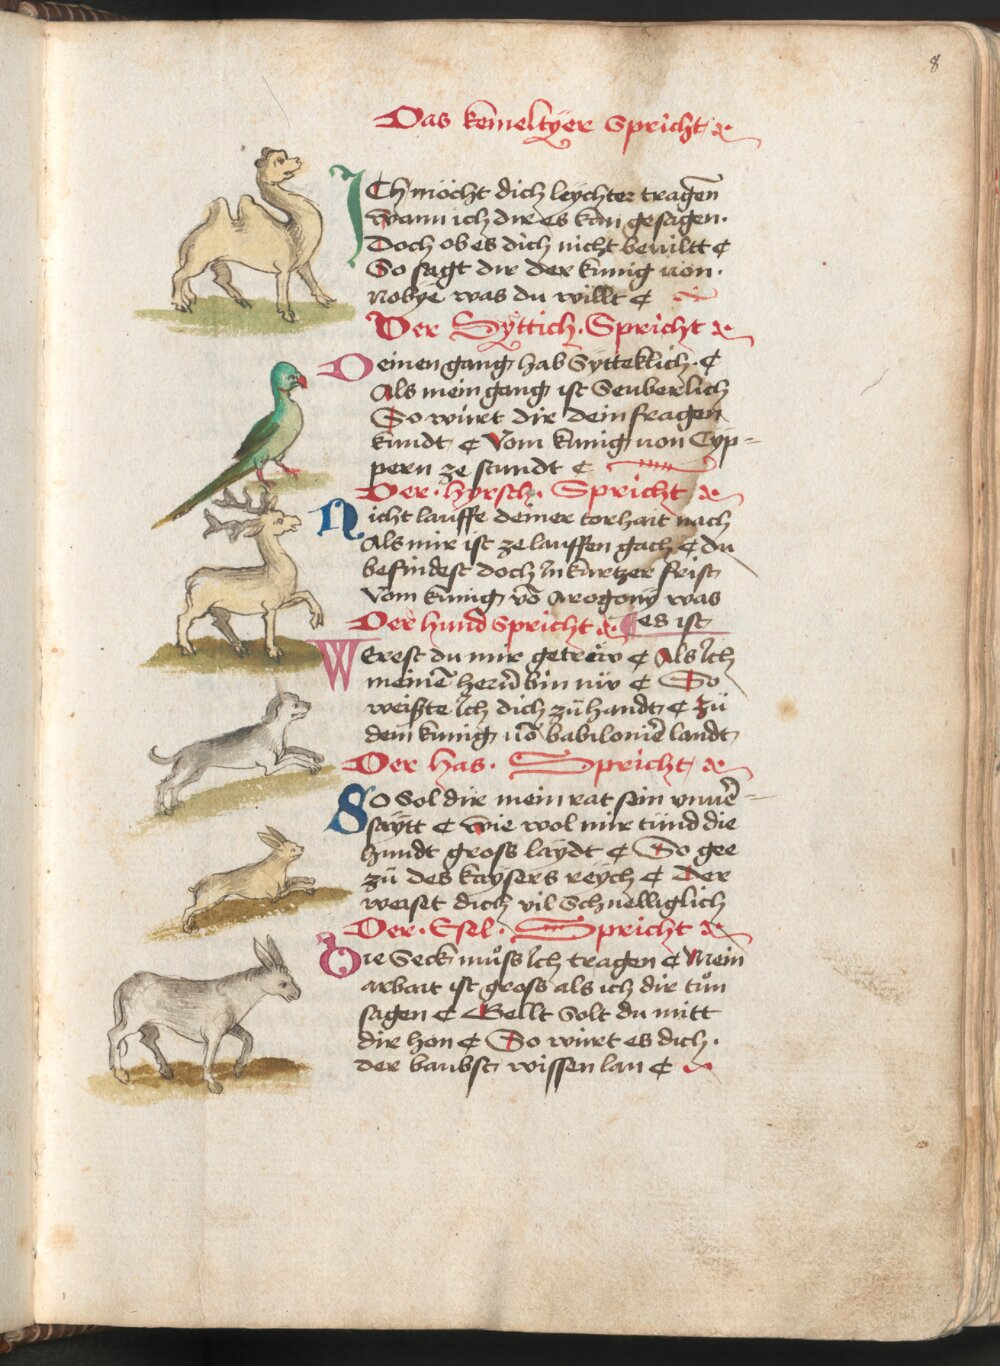 8
Das kemeltyer Spricht
ICh möcht dich leychter tragen
Wann ich dir es kan gesagen.
Doch ob es dich nicht beuiltt ¢
So sagt dir der kunig uon.
Nobye was du willt ¢
Der Syttich. Spricht
Deinen gang hab Sytteklich. ¢
Als mein gang ist Seuberlich
So wirt dir dein fragen
kundt ¢ Vom kunig uon Cyp=
pern ze stundt ¢
Der. hyrsch. Spricht
Nicht lauffe deiner torhait nach
Als mir ist ze lauffen gach ¢ du
befindest doch In kurtzer frist
Vom kunig vō Arogony was
Der hund Spricht ¢ es ist
Werest du mir getrew ¢ Als Ich
meinē herñ bin nüv ¢ So
weiste Ich dich zů handt ¢ Zů
dem kunig uō babilonie landt
Der has. Spricht
So Sol dir mein rat sein vnuer=
saytt ¢ Wie wol mir tůnd die
hundt gross laydt ¢ So gee
zů des kaysers reych ¢ Der
weiset dich vil Schnelliglich
Der. Esel. Spricht
Die Seck můss Ich tragen ¢ Mein
arbait ist gross als ich dir tůn
sagen ¢ Gellt Solt du mitt
dir hon ¢ So wirt es dich.
der baubst wissen lan ¢